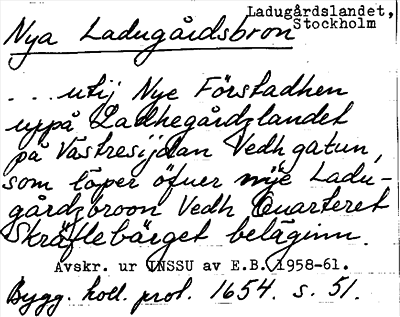 Ladugårdslandet,
Stockholm
Nya Ladugårdsbron
... utij Nye Förstadhen
uppå Ladhegårdzlandet
på Västresijdan Vedh gatun,
som löper öfuer nije Ladu-
gårdzbroon Vedh Quarteret
Skräflebärget beläginn.
Avskr. ur INSSU av E.B. 1958-61.
Bygg. koll. prot. 1654. s. 51.